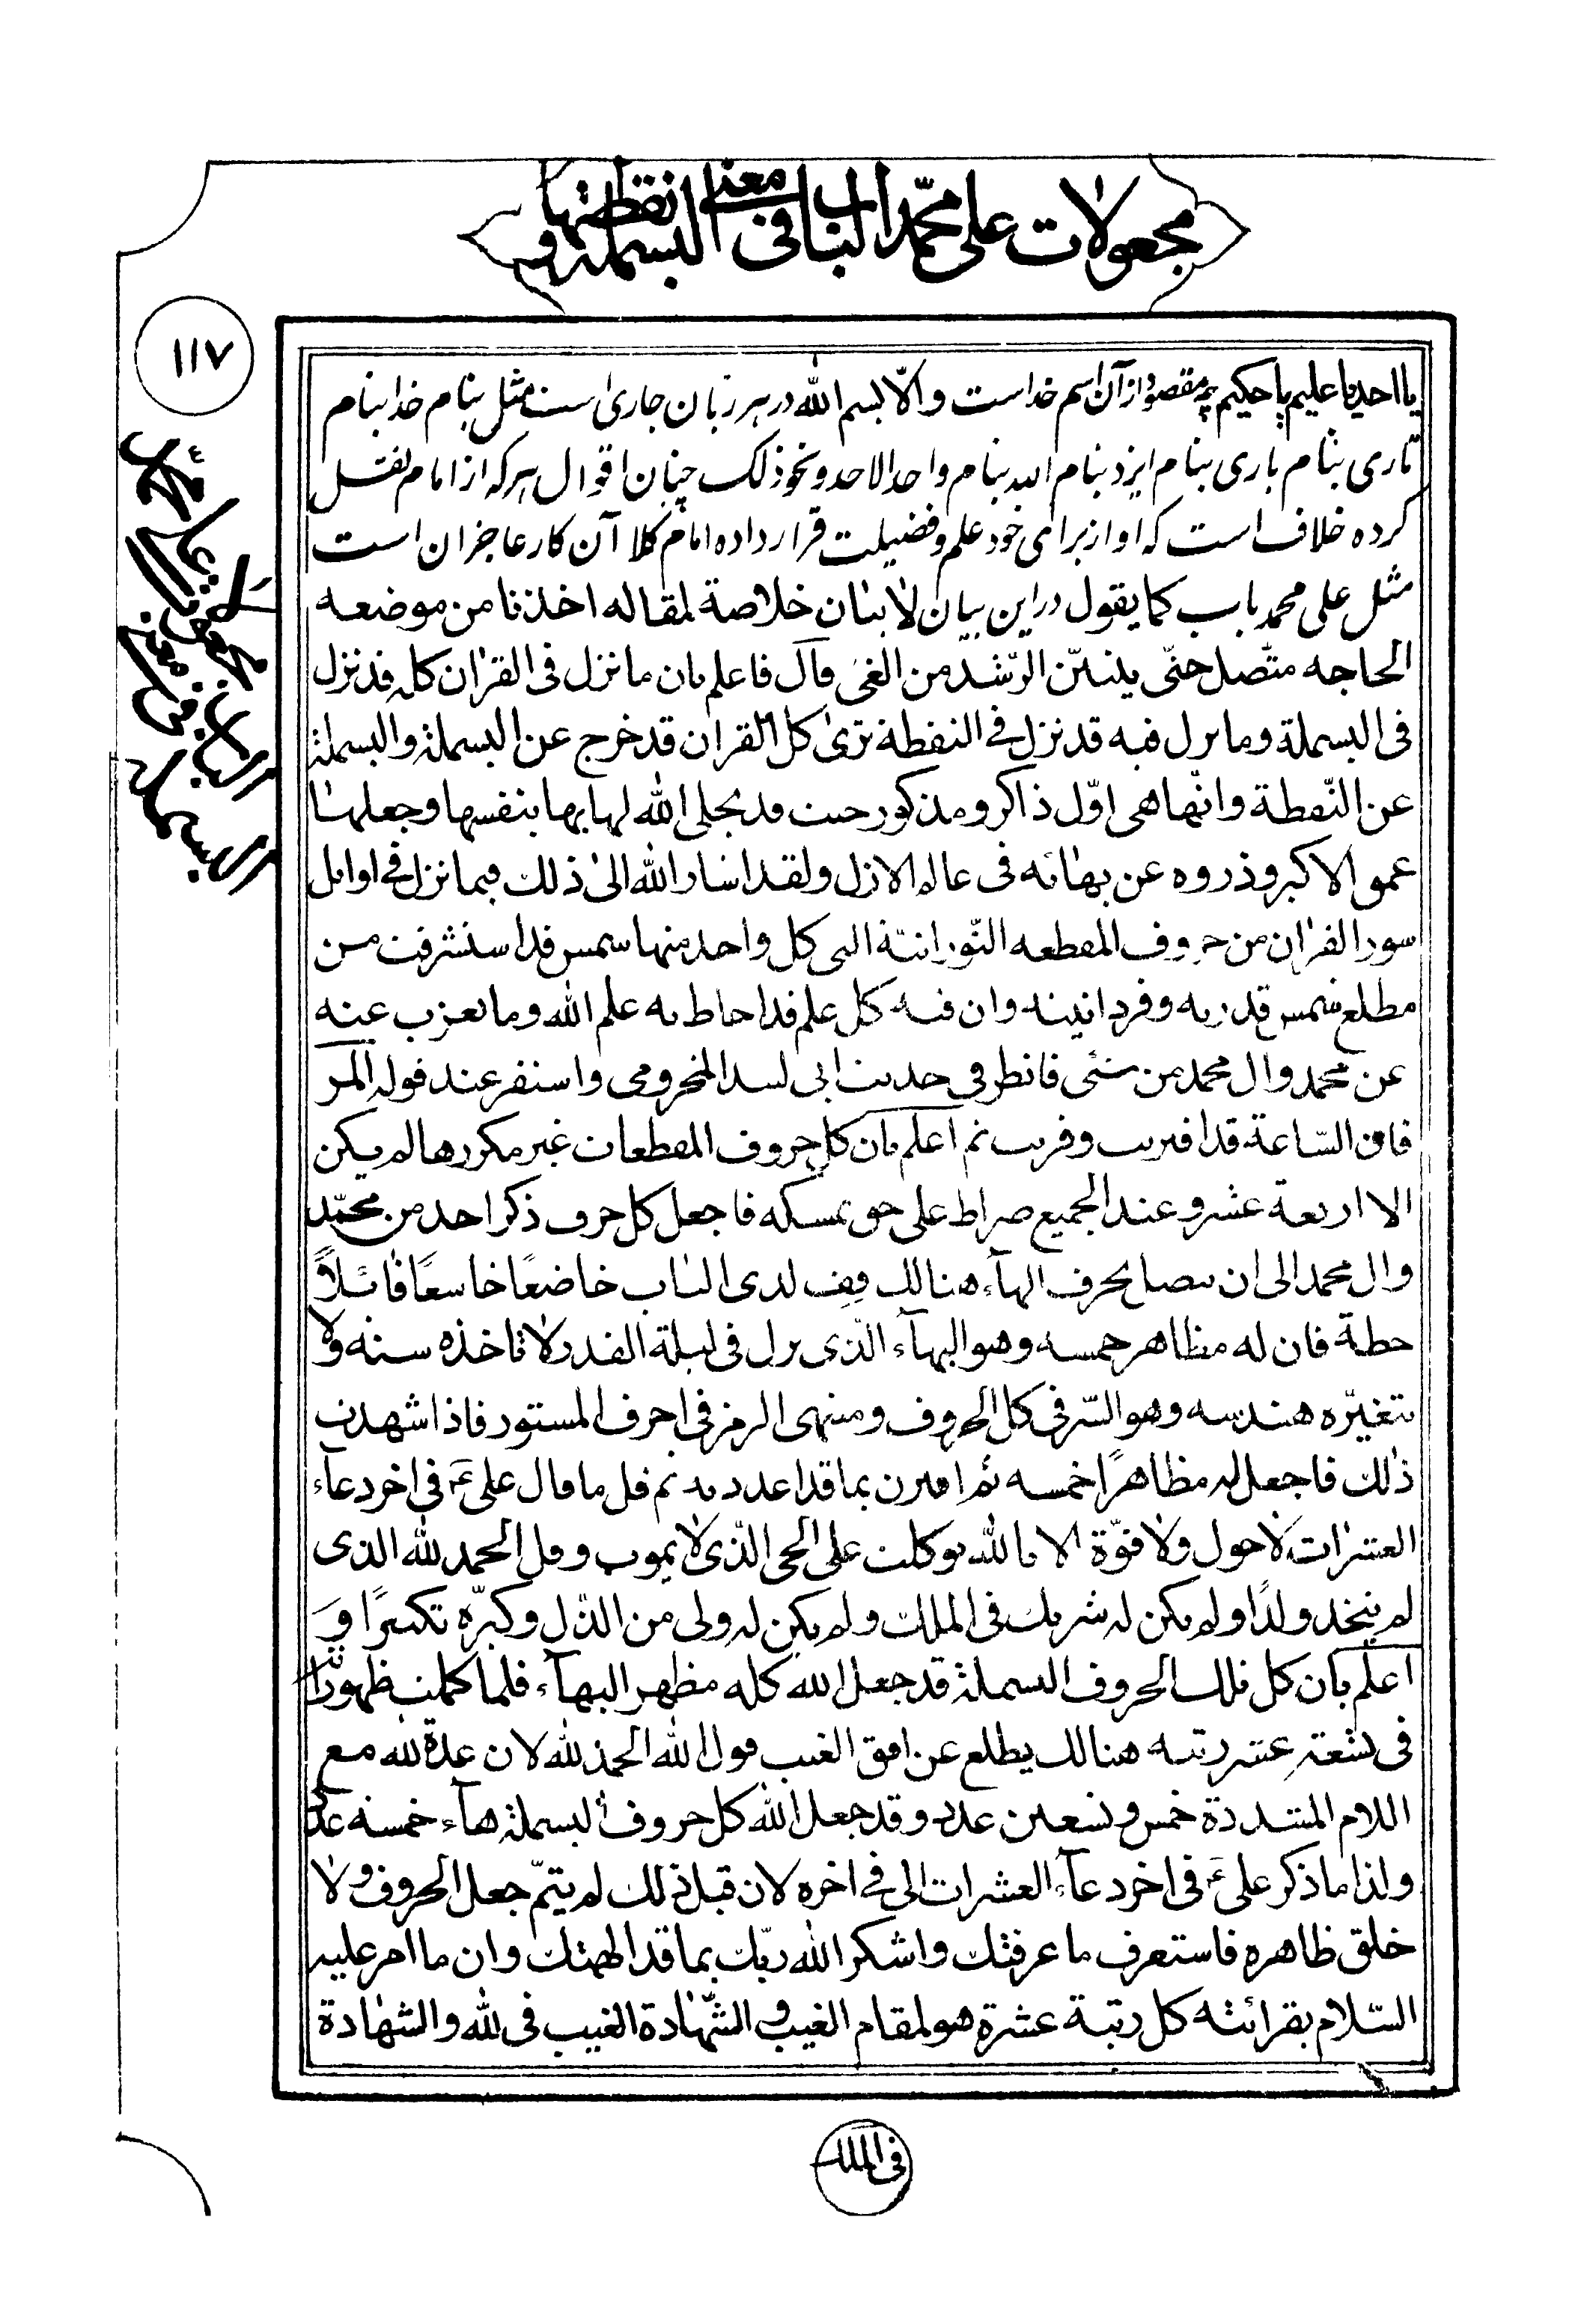 مجعولات علی محمد الباب فی معنی البسملة و نقطتها
۱۱۷
یا احد یا علیم یا حکیم چه مقصود از آن اسم خداست والّا بسم الله در هر زبان جاری است مثل بنام خدا بنام
تاری بنام باری بنام ایزد بنام الله بنام واحد الاحد و نحو ذلک چنان اقوال هر که از امام نقل
کرده خلاف است که او از برای خود علم و فضیلت قرار داده امام کلا آن کار عاجزان است
مثل علی محمد باب کما یقول در این بیان لابنان خلاصة لمقاله اخذنا من موضعه
الحاجه متصل حتّی یتبیّن الرّشد من الغی قال فاعلم بان ما نزل فی القران کله قد نزل
فی البسملة وما نزل فیه قد نزل فی النقطة تری کل القران قد خرج عن البسملة والبسملة
عن النّقطة وانّها هی اوّل ذاکر ومذکور حیث قد تجلی الله لها بها بنفسها وجعلها
عمو الاکبر وذروه عن بهائه فی عالم الازل ولقد اشار الله الی ذلک فیما نزل فی اوایل
سور القران من حروف المقطعه النّورانیّة التی کل واحد منها شمس قد استشرقت من
مطلع شمس قدریه وفردانیته وان فیه کل علم قد احاط به علم الله وما یعزب عنه
عن محمد وال محمد من شئی فانظر فی حدیث ابی لبید المخزومی واستقر عند قوله المر
فان السّاعة قد اقتربت وقربت ثم اعلم بان کل حروف المقطعات غیر مکررها لم یکن
الا اربعة عشر وعند الجمیع صراط علی حق نمسکه فاجعل کل حرف ذکر احد من محمّد
وال محمد الی ان تصل بحرف الهآء هنالک قف لدی الباب خاضعًا خاشعًا قائلًا
حطة فان له مظاهر خمسه وهو البهآء الّذی نزل فی لیلة القدر لا تاخذه سنه ولا
تغیّره هندسه وهو السّر فی کل الحروف ومنتهی الرمز فی احرف المستور فاذا شهدت
ذلک فاجعل له مظاهرًا خمسه ثم اقترن بما قد اعدد به ثم قل ما قال علی ع فی اخر دعآء
العشرات لا حول ولا قوّة الا بالله توکلت علی الحی الّذی لا یموت وقل الحمد لله الذی
لم یتخذ ولدًا ولم یکن له شریک فی الملک ولم یکن له ولی من الذّل وکبّره تکبیرًا وَ
اعلم بان کل تلک الحروف البسملة قد جعل الله کله مظهر البهآء فلما کملت ظهورًا
فی تسعة عشر رتبه هنالک یطلع عن افق الغیب قول الله الحمد لله لان عدة لله مع
اللام المشددة خمس وتسعین عدد وقد جعل الله کل حروف البسملة هآء خمسه عدد
ولذا ما ذکر علی ع فی اخر دعآء العشرات الی فی اخره لان قبل ذلک لم یتمّ جعل الحروف ولا
خلق ظاهره فاستعرف ما عرفتک واشکر الله ربّک بما قد الهمتک وان ما امر علیه
السّلام بقرائته کل رتبة عشرة هو لمقام الغیب والشّهادة الغیب فی لله والشهادة
فی الملک